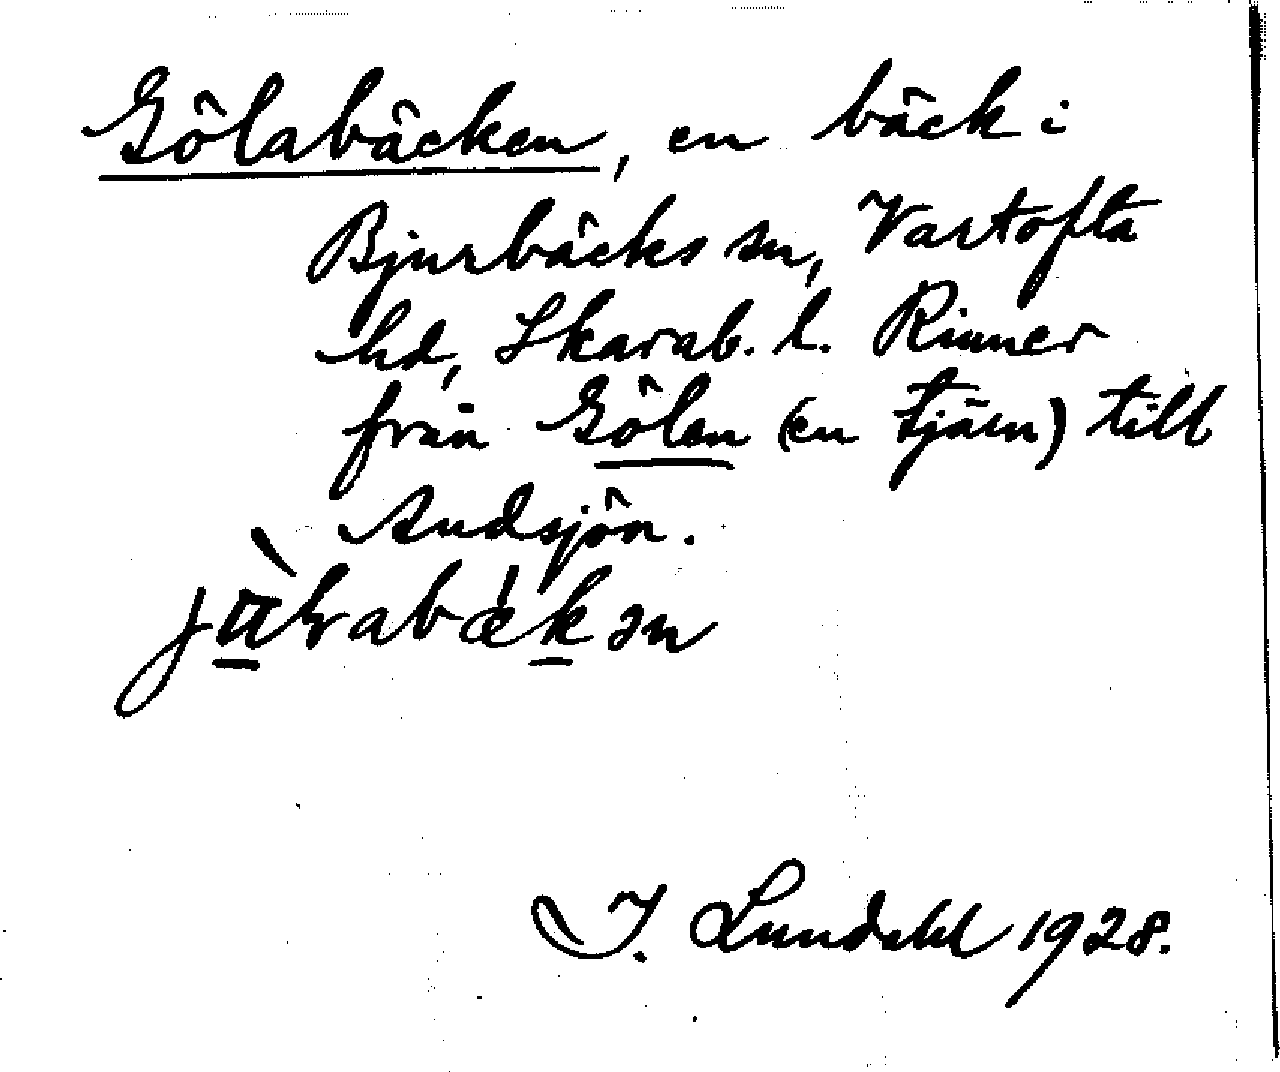 Gölabäcken, en bäck i
Bjurbäcks sn, Vartofta
hd, Skarab. l. Rinner
från Gölen (en tjärn) till
Andsjön.
I. Lundahl 1928.